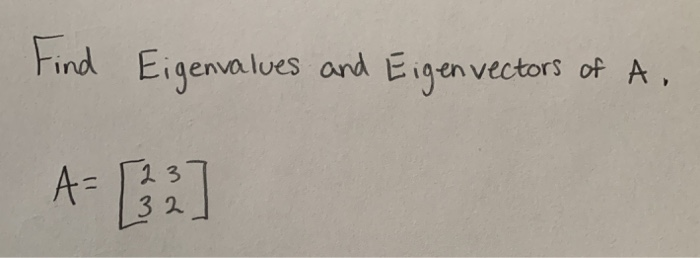 Find Eigenvalues and Eigenvectors of A.
A = [2 3
3 2]